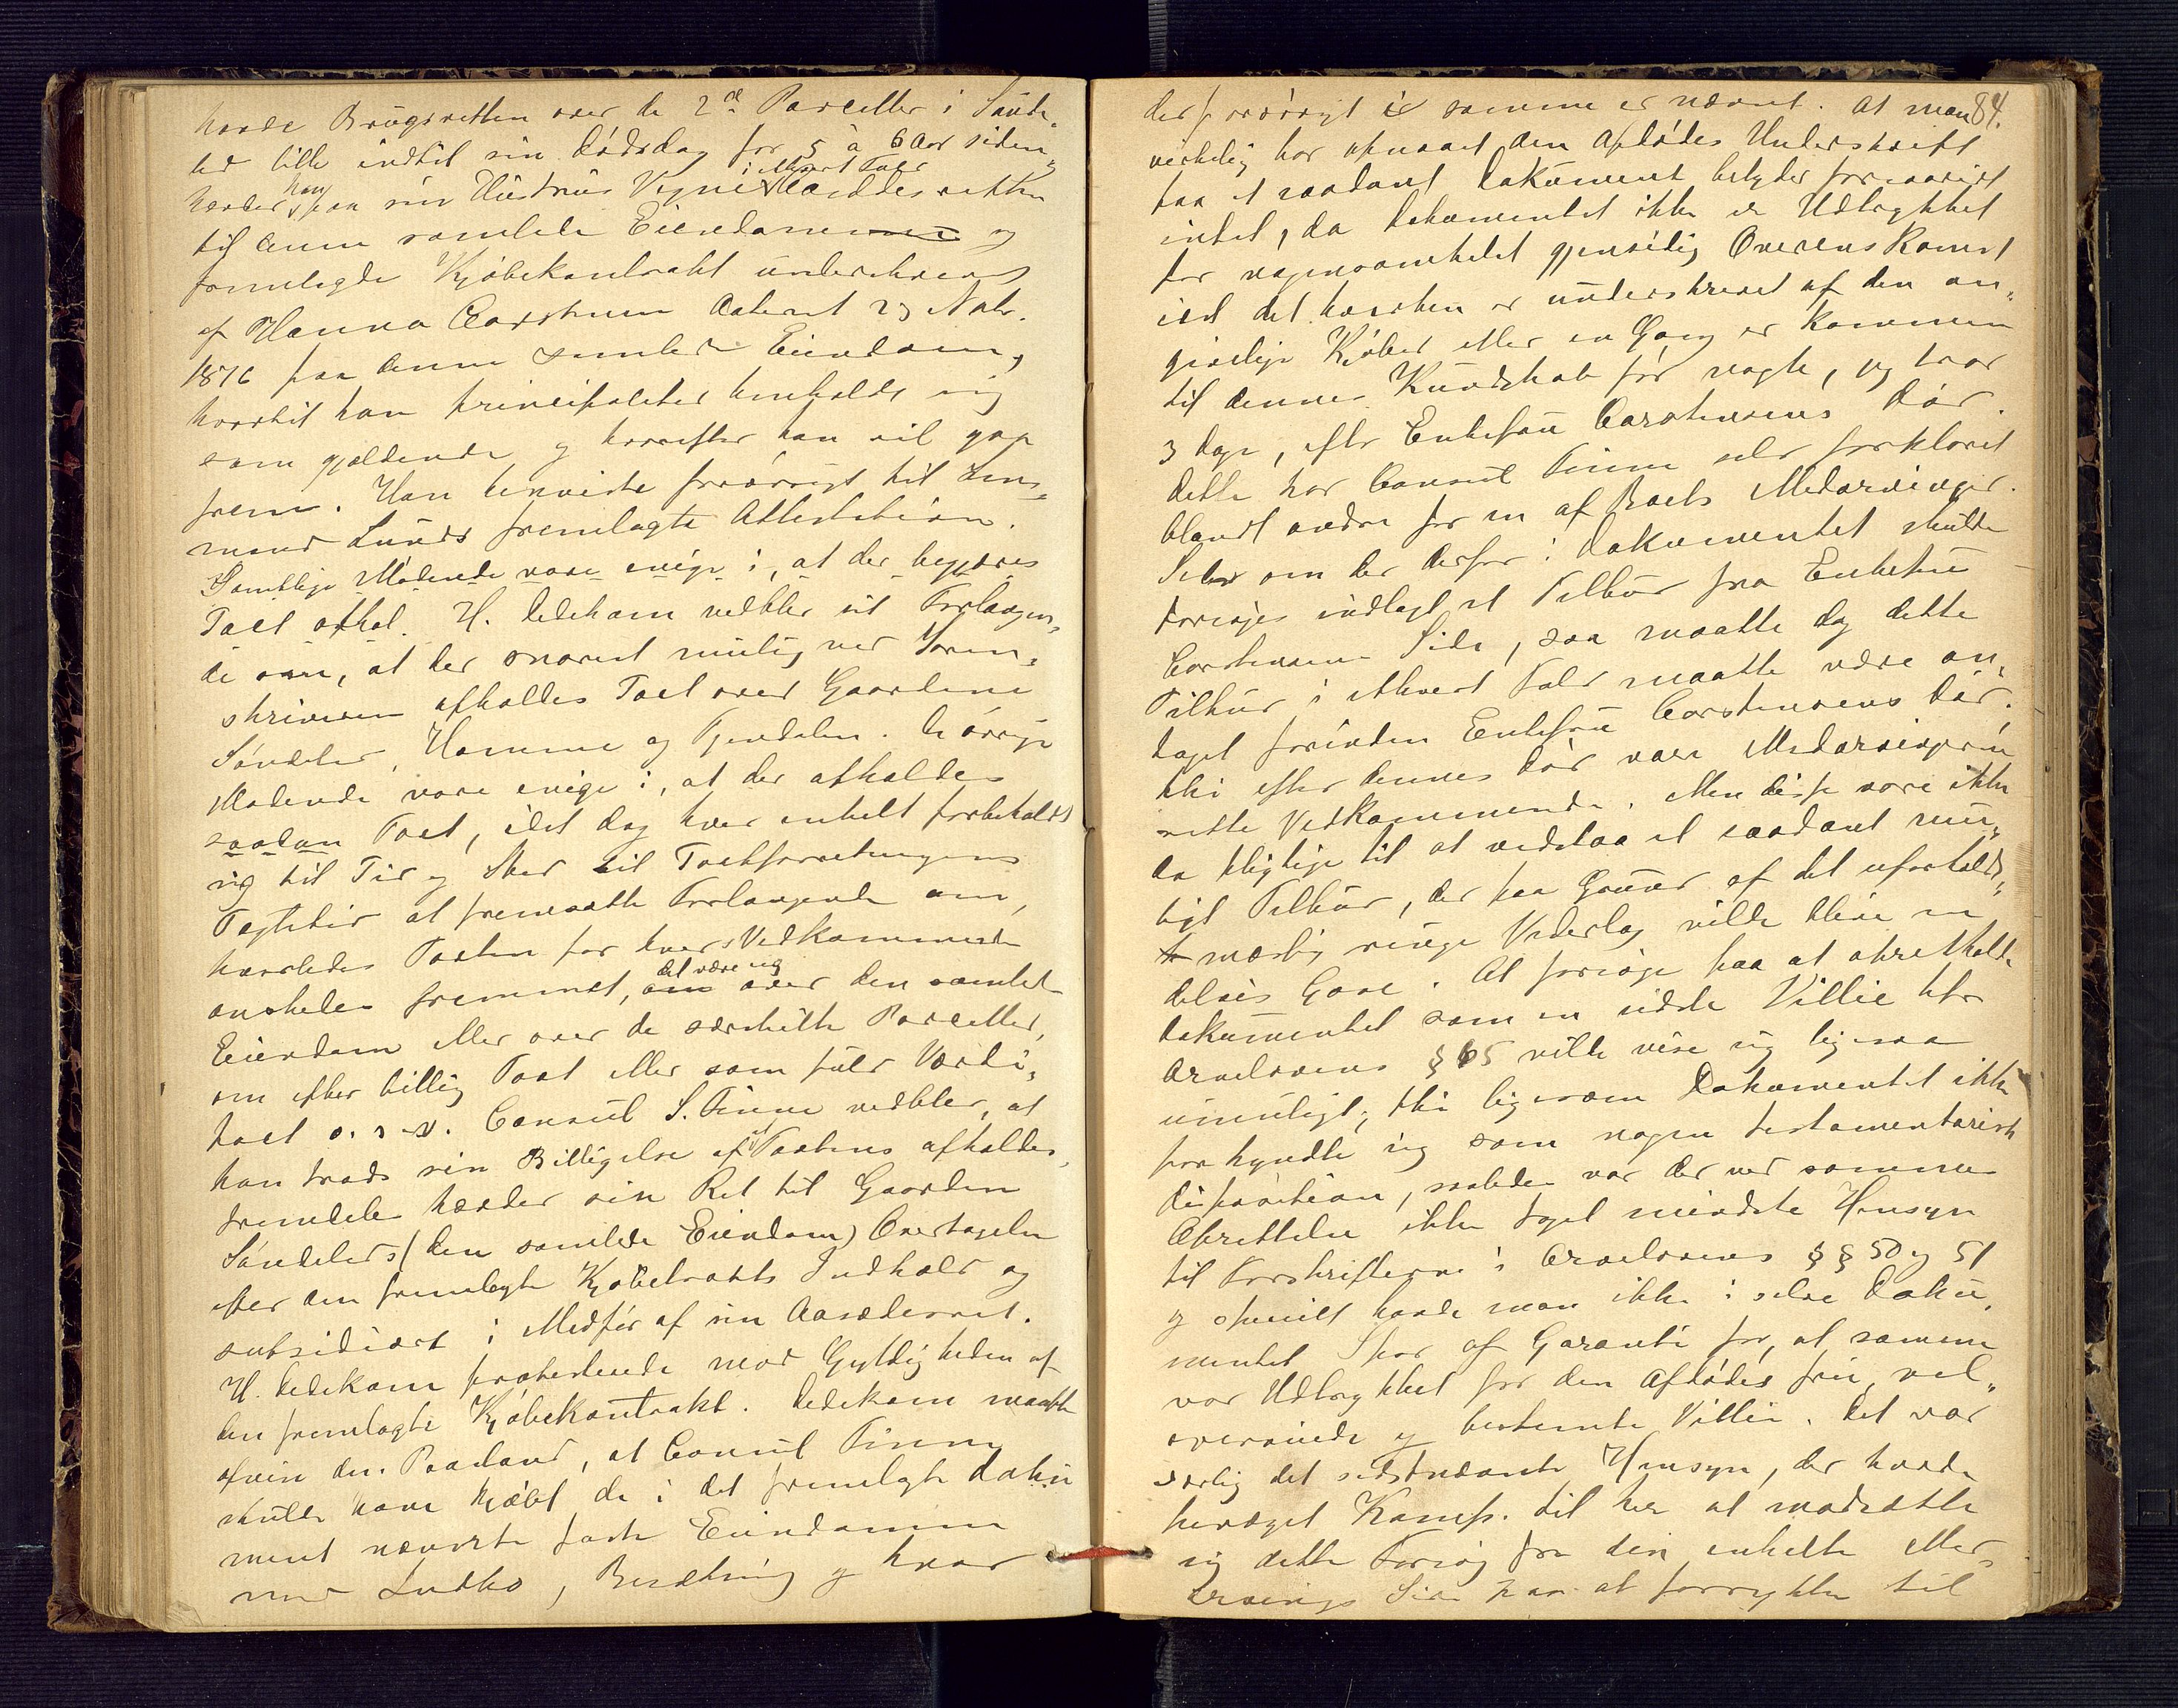 havde Brugsretten over de 2de Parceller i Sønde,
led lille indtil sin Dødsdag for 5 à 6 Aar siden,
hævder han paa sin Hustrues Vegne i ethvert Fald Aasædesretten
til denne samlede Eiendom og
fremlagde Kjøbekontrakt underskreven
af Hanna Carstensen dateret 23 Novbr.
1876 paa denne samlede Eiendom,
hvortil han principaliter henholdt sig
som gjældende og hvorefter han vil gaa
frem. Han henviste forøvrigt til Lens,
mand Lunds fremlagte Attestation.
Samtlige Mødende vare enige i, at der begjæres
Taxt afhol. H. Dedekam vedblev sit Forlangen,
de om, at der snarest mulig ved Soren,
skriveren afholdes Taxt over Gaardene
Søndeled, Hamme og Tjendalen. De øvrige
Mødende vare enige i, at der afholdes
saadan Taxt, idet dog hver enkelt forbeholdt
sig til Tid og Sted til Taxtforretningens
Foretagelse at fremsætte Forlangende om,
hvorledes Taxten for hvers Vedkommende
ønskedes fremmet, det være sig over den samlede
Eiendom eller over de særskilte Parceller,
om efter billig Taxt eller som fuld Værdi,
taxt o. s. v. Consul S. Finne vedblev, at
han trods sin Billigelse af at Taxtens afholdes,
fremdeles hævder sin Ret til Gaarden
Søndeleds (den samlede Eiendom) Overtagelse
efter den fremlagte Kjøbekontrakts Indhold og
subsidiært i Medfør af sin Aasædesret.
H. Dedekam protesterede mod Gyldigheden af
den fremlagte Kjøbekontrakt. Dedekam maatte
afvise den Paastand, at Consul Finne
skulde have kjøbt de i det fremlagte Doku
ment nævnte faste Eiendomme
med Indbo, Besætning og hvad
84.
der forøvrigt i samme er nævnt. At man
virkelig har opnaaet den Afdødes Underskrift
paa et saadant Dokument betyder forsaavidt
intet, da Dokumentet ikke er Udtrykket
for nogensomhelst gjensidig Overenskomst
idet det hverken er underskrevet af den an,
givelige Kjøber eller en Gang er kommen
til dennes Kundskab før nogle, jeg tror
3 Dage, efter Enkefru Carstensens Død.
Dette har Consul Finne selv forklaret
blandt andre for en af Boets Medarvinger.
Selv om der derfor i Dokumentet skulde
forsøges indlagt et Tilbud fra Enkefru
Carstensens Side, saa maatte dog dette
Tilbud i ethvert Fald maatte være an,
taget forinden Enkefru Carstensens Død,
thi efter dennes Død vare Medarvingerne
rette Vedkommende. Men disse vare ikke
da pligtige til at vedstaa et saadant mun,
ligt Tilbud, der paa Grund af det uforholds,
mæssig ringe Vederlag vilde blive en
delvis Gave. At forsøge paa at opretholde
Dokumentet som en sidste Villie efter
Arvelovens § 65 vilde vise sig ligesaa
umuligt; thi ligesom Dokumentet ikke
forkyndte sig som nogen testamentarisk
Disposition, saaledes var der ved sammes
Oprettelse ikke taget mindste Hensyn
til Forskrifterne i Arvelovens §§ 50 og 51
og specielt havde man ikke i selve Doku,
mentet Spor af Garanti for, at samme
var Udtrykket for den Afdødes frie, vel,
overveiede og bestemte Villie. Det var
særlig det sidstnævnte Hensyn, der havde
bevæget Komp. til her at modsætte
sig dette Forsøg fra den enkelte Med,
arvings Side paa at forrykke til